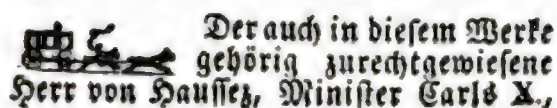 Der auch in diesem Werke
gehörig zurechtgewiesene
Herr von Haussez, Minister Carls X.,